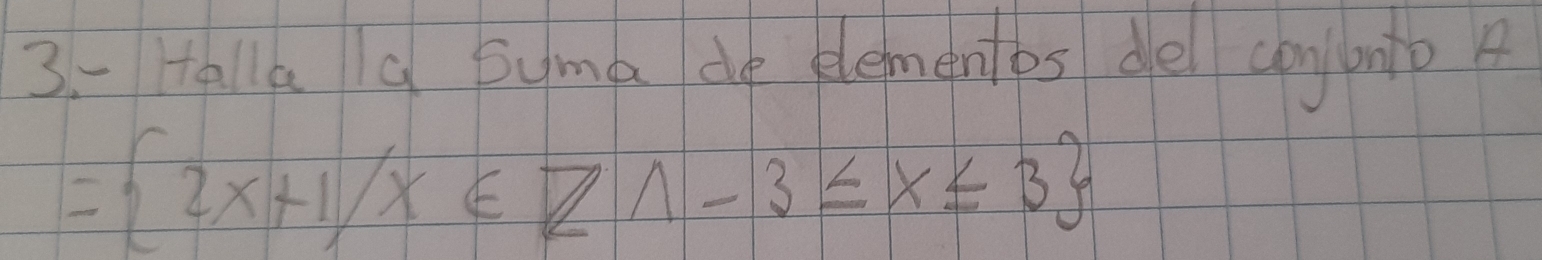 3.- Halla la Suma de elementos del conjunto A
= { 2x+1/x ∈ ℤ ∧ - 3 ≤ x ≤ 3}